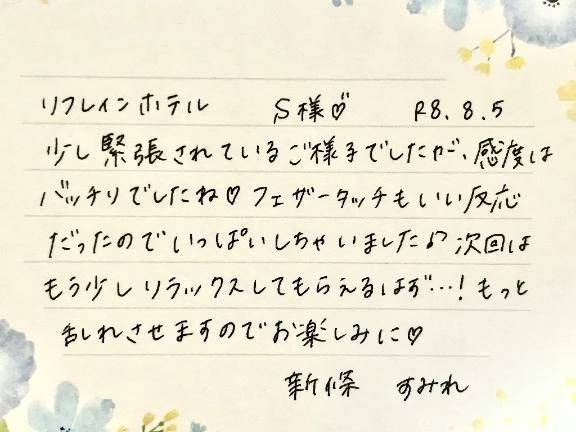 リフレインホテル S様♡ R8.8.5
少し緊張されているご様子でしたが、感度は
バッチリでしたね♡フェザータッチもいい反応
だったのでいっぱいしちゃいました♪次回は
もう少しリラックスしてもらえるはず…！もっと
乱れさせますのでお楽しみに♡
新條 すみれ